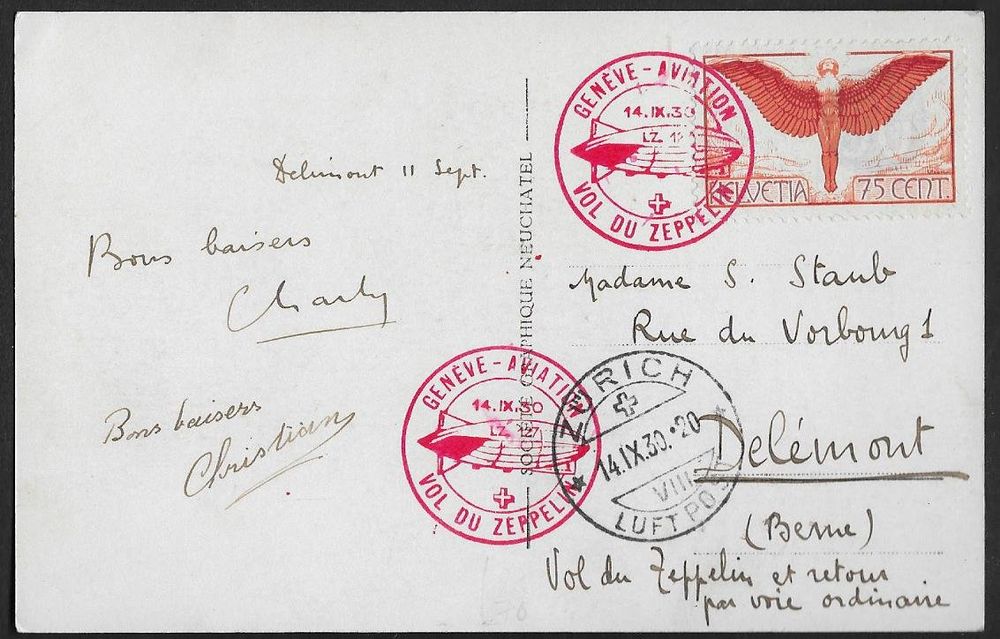 Delémont 11 Sept.
Bons baisers
Charly
Bons baisers
Christian
SOCIÉTÉ GRAPHIQUE NEUCHATEL
GENÈVE - AVIATION
14.IX.30
LZ. 127
VOL DU ZEPPELIN
HELVETIA 75 CENT.
Madame S. Staub
Rue du Vorbourg 1
Delémont
(Berne)
Vol du Zeppelin et retour
par voie ordinaire
GENÈVE - AVIATION
14.IX.30
LZ. 127
VOL DU ZEPPELIN
ZÜRICH
14.IX.30.20
VIII
LUFTPOST